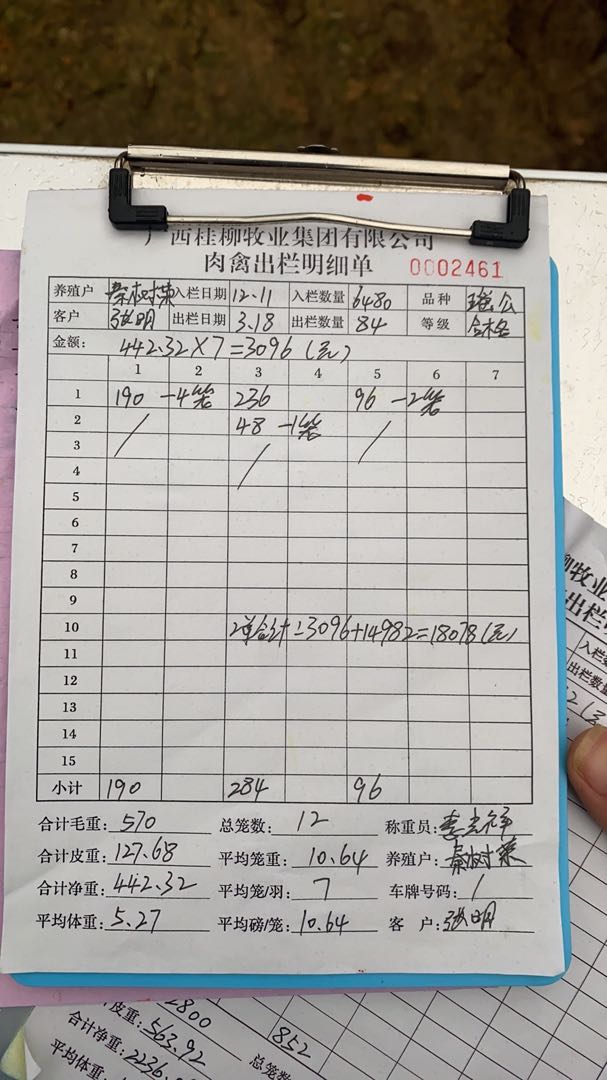 广西桂柳牧业集团有限公司
肉禽出栏明细单 0002461
养殖户 秦树荣 入栏日期 12.11 入栏数量 6480 品种 公
客户 张明 出栏日期 3.18 出栏数量 84 等级 合格
金额: 442.32×7=3096(元)
1 2 3 4 5 6 7
1 190 -4笼 236 96 -2笼
2 / 48 -1笼 /
3
4 /
5
6
7
8
9
10 2单合计=3096+14982=18078(元)
11
12
13
14
15
小计 190 284 96
合计毛重: 570 总笼数: 12 称重员: 李
合计皮重: 127.68 平均笼重: 10.64 养殖户: 秦树荣
合计净重: 442.32 平均笼/羽: 7 车牌号码: /
平均体重: 5.27 平均磅/笼: 10.64 客 户: 张明
2800
皮重: 563.92 852
合计净重: 2236. 总笼数
平均体重:
牧业
出栏
入栏
出栏数量